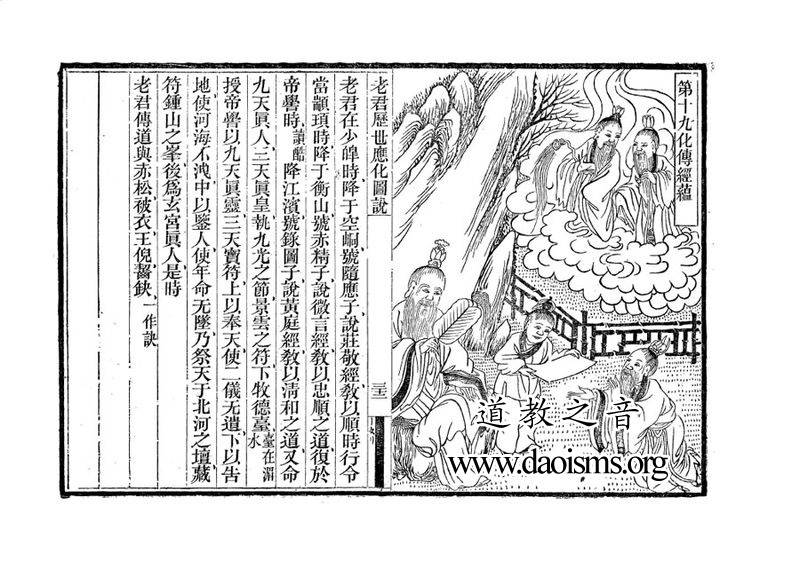 第十九化傳經蘊
老君歷世應化圖說
老君在少皡時降于空峒號隨應子說莊敬經教以順時行令
當顓頊時降于衡山號赤精子說微言經教以忠順之道復於
帝嚳時讀酷降江濱號錄圖子說黃庭經教以清和之道又命
九天眞人三天眞皇執九光之節景雲之符下牧德臺臺在渭水
授帝嚳以九天眞靈三天寶符上以奉天使二儀无遺下以告
地使河海不洩中以鑒人使年命无墜乃祭天于北河之壇藏
符鍾山之峯後爲玄宮眞人是時
老君傳道與赤松被衣王倪齧鈌一作訣
道教之音
www.daoisms.org